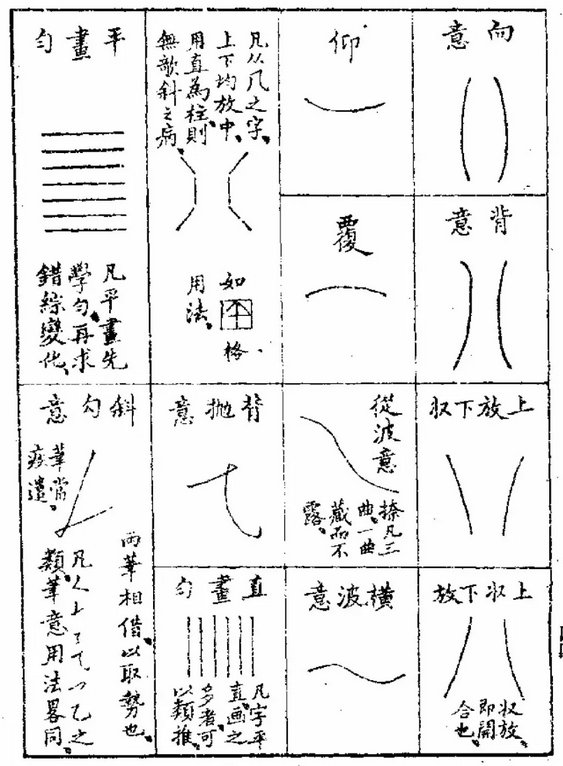 向意
背意
上放下収
上収下放
収放
即開
合也
仰
覆
從波意
捺凡三
曲一曲
藏而不
露
橫波意
凡从几之字
上下均放中
用直為柱則
無欹斜之病
如格
用法
背抛意
直畫勻
凡字平
直画之
多者可
以類推
平畫勻
凡平畫先
學勻再求
錯綜變化
斜勾意
筆當
疾遣
兩筆相借以取勢也
凡之
類筆意用法畧同